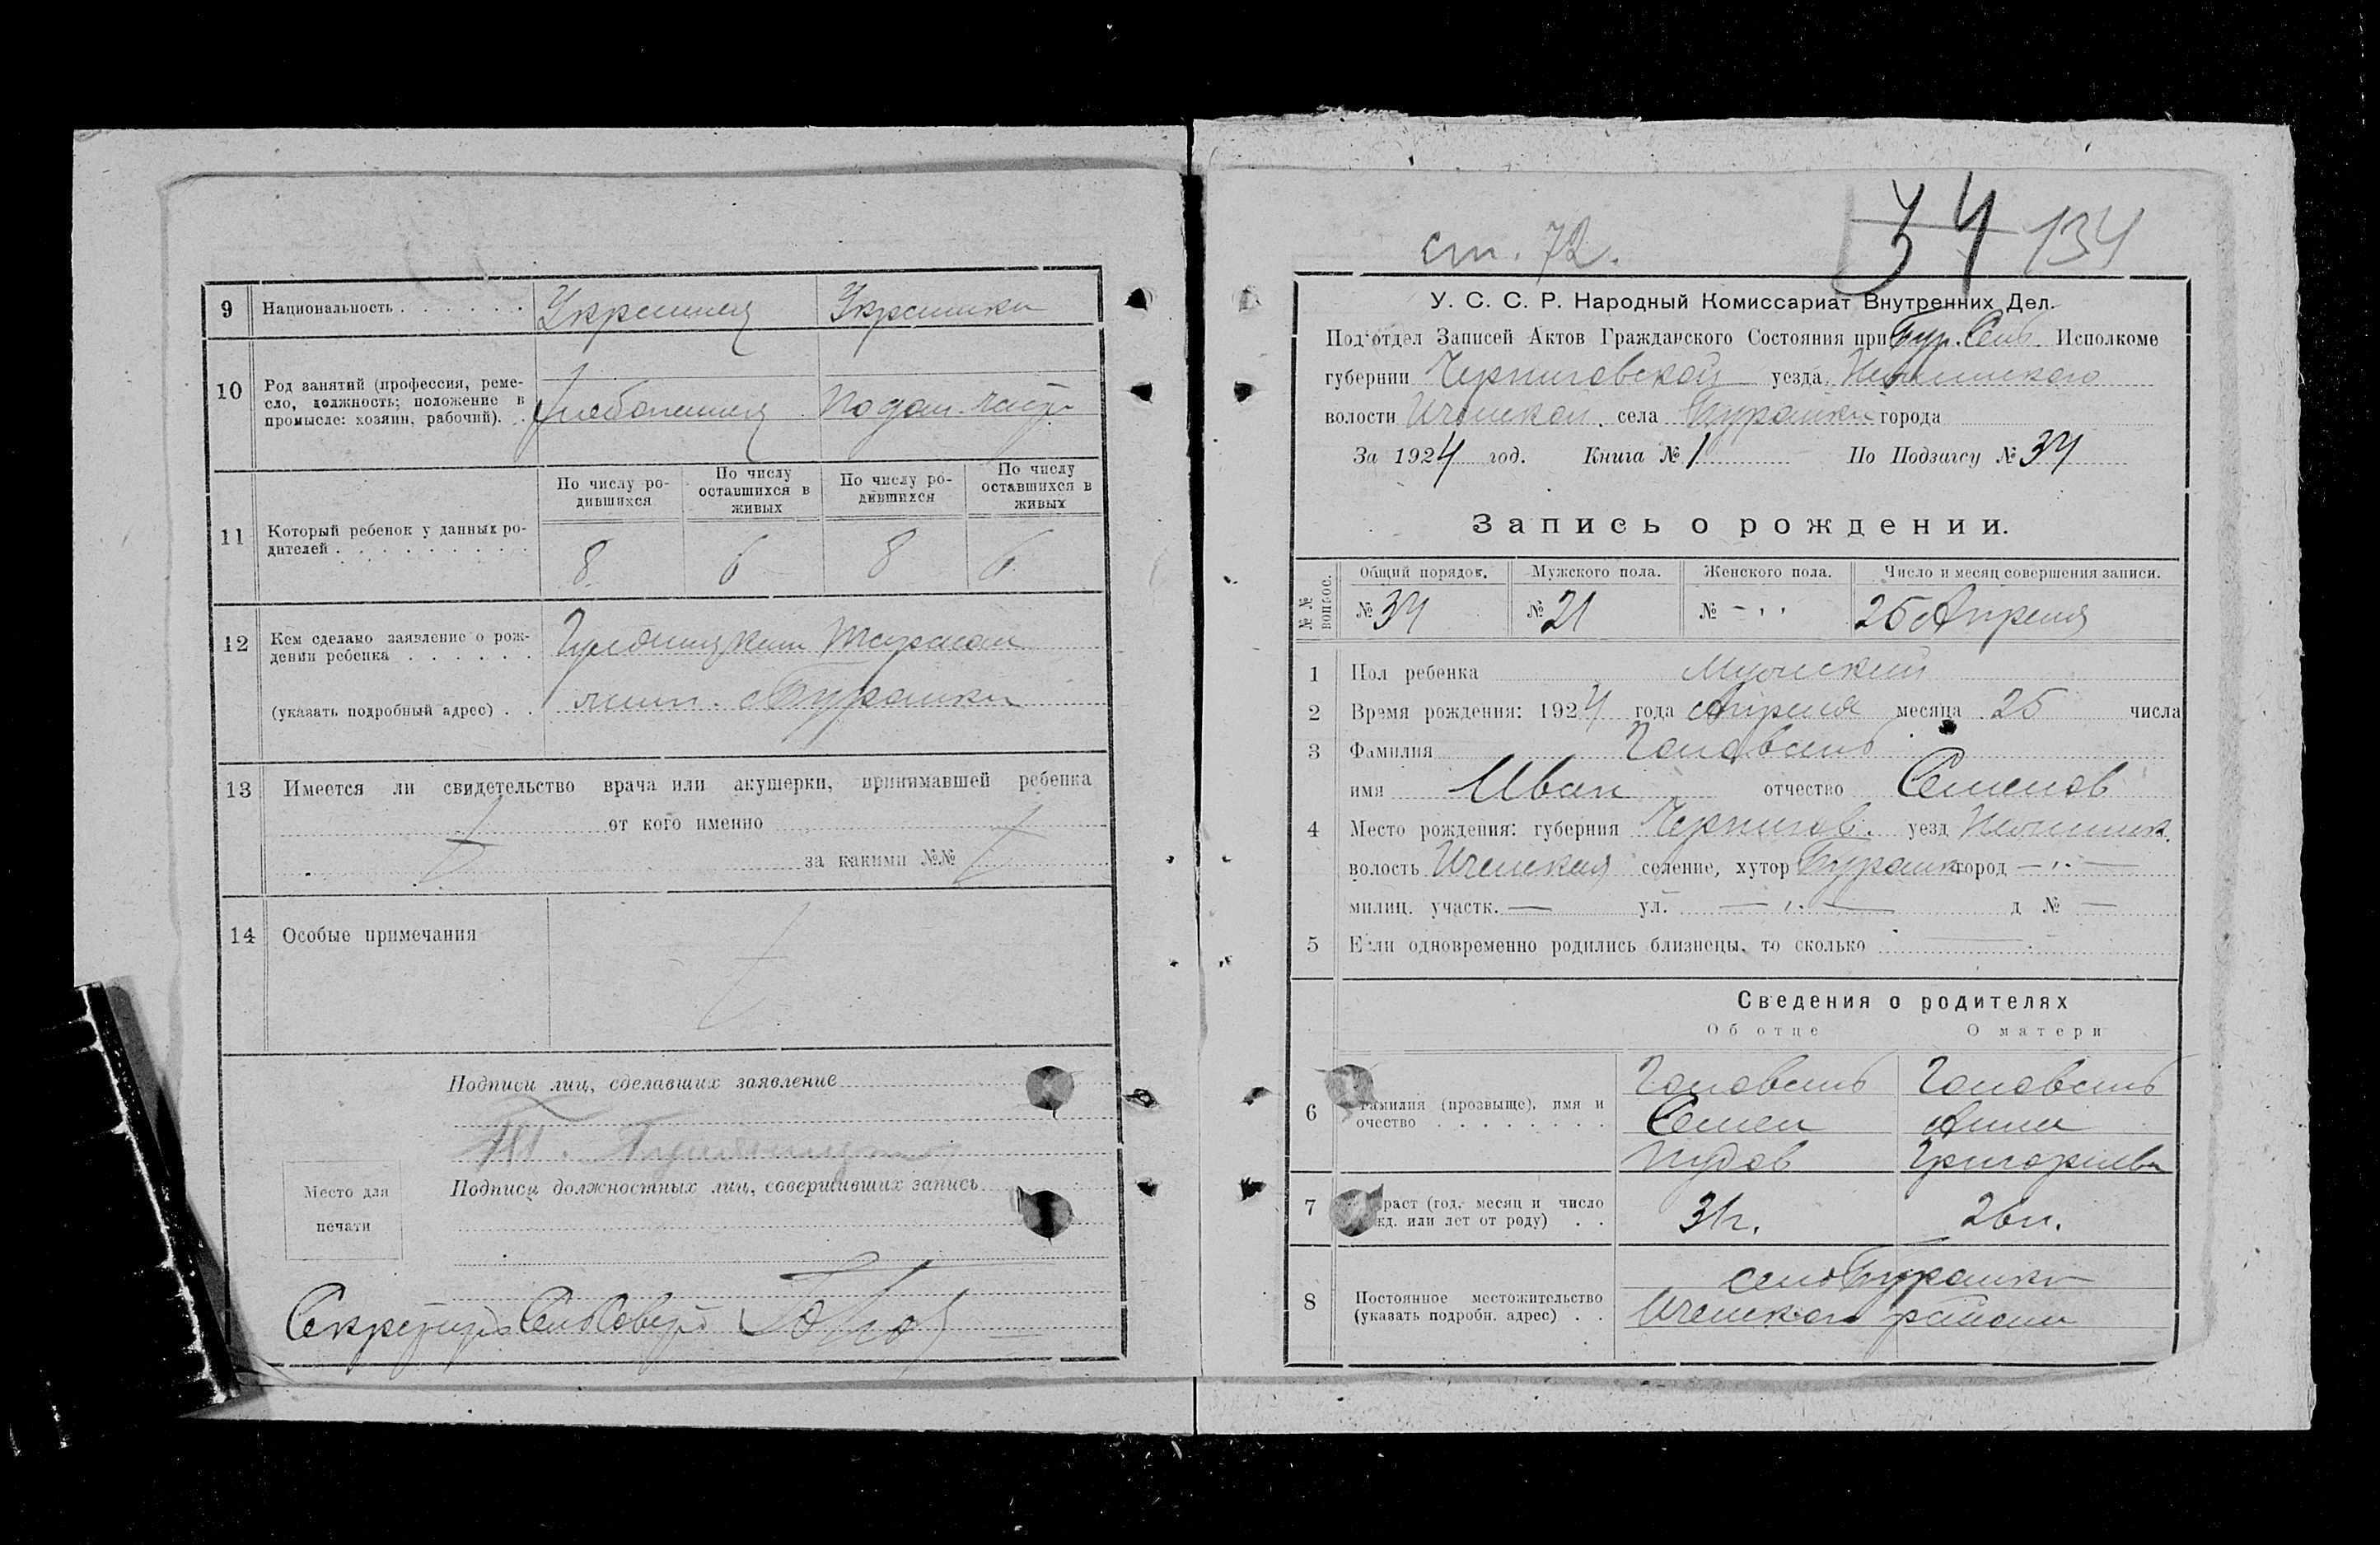 9 Национальность Украинец Украинка
10 Род занятий (профессия, реме-
сло, должность; положение в
промысле: хозяин, рабочий). Хлебопашец
11 Который ребенок у данных ро-
дителей
По числу ро-
дившихся
По числу
оставшихся в
живых
По числу ро-
дившихся
По числу
оставшихся в
живых
8 6 8 6
12 Кем сделано заявление о рож-
дении ребенка
(указать подробный адрес) жит. с Бурашки
13 Имеется ли свидетельство врача или акушерки, принимавшей ребенка
от кого именно
за какими №№
14 Особые примечания
Подписи лиц, сделавших заявление
Подписи должностных лиц, совершивших запись
Место для
печати
Секретарь СельСовету
ст. 72.
34 134
У. С. С. Р. Народный Комиссариат Внутренних Дел.
Под'отдел Записей Актов Гражданского Состояния при Бур. Сель. Исполкоме
губернии Черниговской уезда Нежинского
волости Иченской села Бурашки города
За 1924 год. Книга № 1 По Подзагсу № 34
Запись о рождении.
№№ вопрос.
Общий порядок. Мужского пола. Женского пола. Число и месяц совершения записи.
№ 34 № 21 № - " 25 Апреля
1 Пол ребенка Мужский
2 Время рождения: 1924 года Апреля месяца 25 числа
3 Фамилия
имя Иван отчество Семенов
4 Место рождения: губерния Чернигов. уезд Нежинск.
волость Иченская селение, хутор Бурашк город — " —
милиц. участк. — ул. — " — д № —
5 Если одновременно родились близнецы, то сколько —
Сведения о родителях
Об отце О матери
6 Фамилия (прозвыще), имя и
очество
Семен Анна
Григориева
7 раст (год, месяц и число
жд. или лет от роду)
8 Постоянное местожительство
(указать подробн. адрес)
село Бурашки
Иченского района